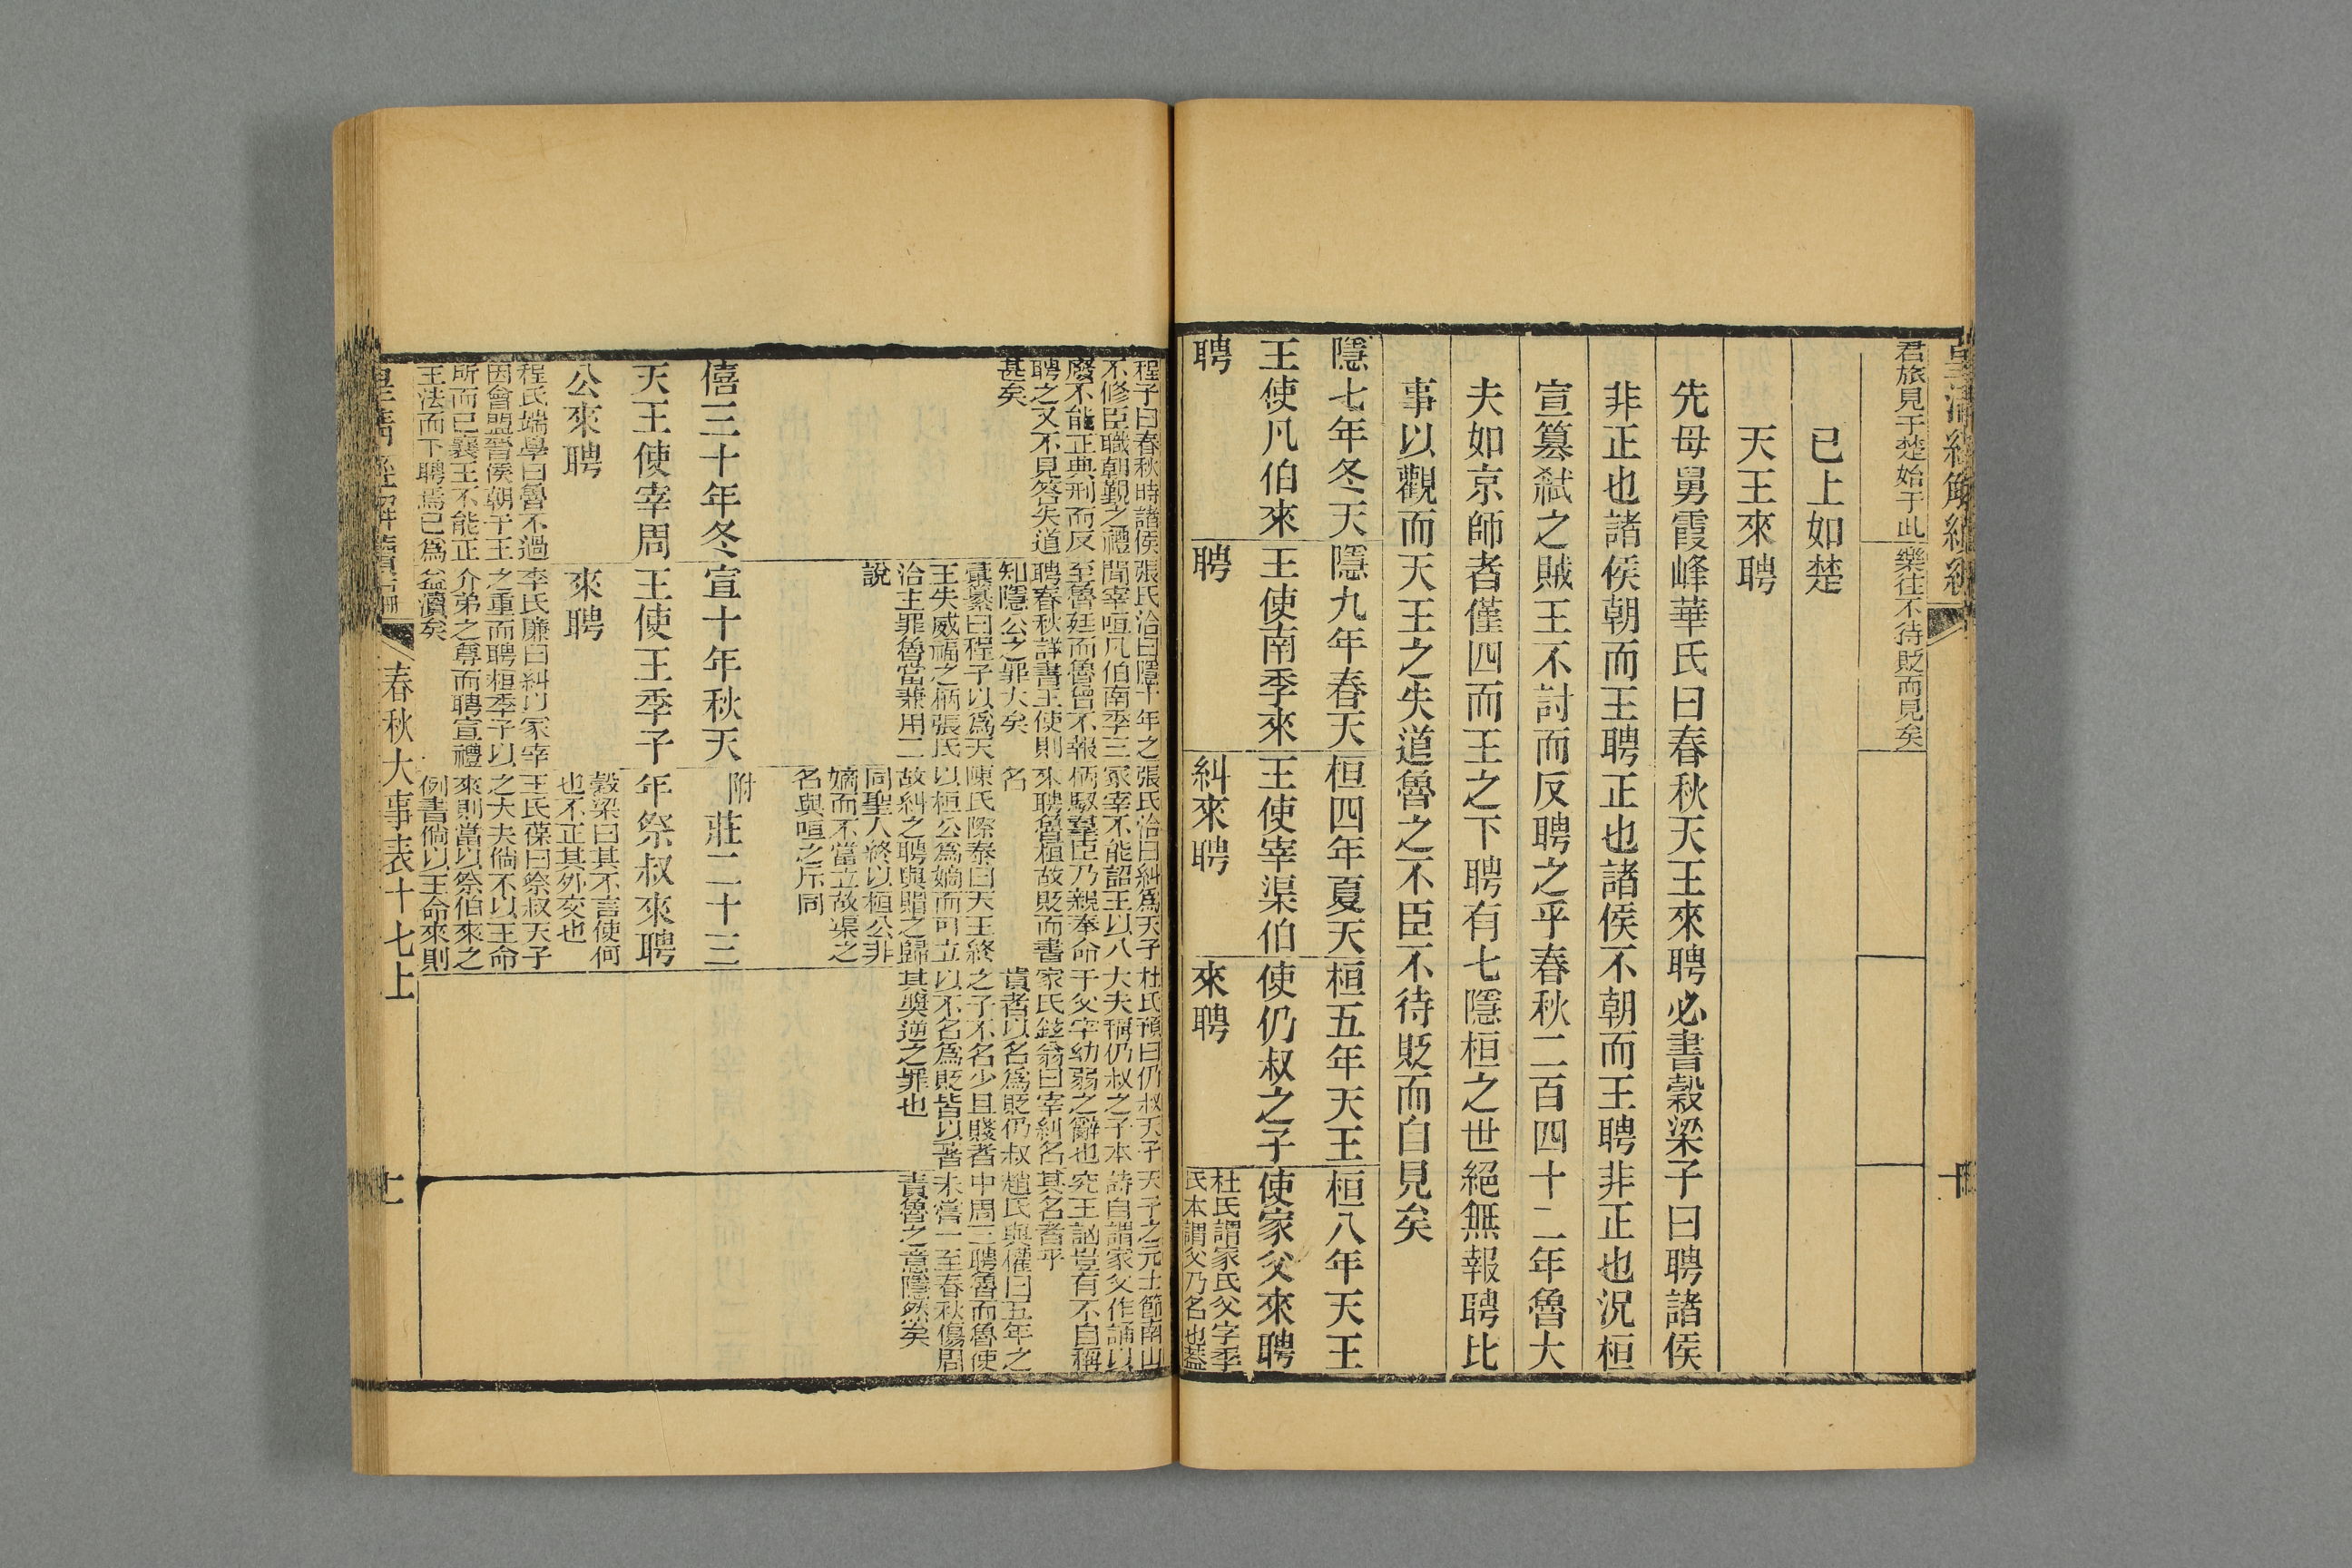 皇清經解續編
十
君旅見于楚始于此
樂往不待貶而見矣
已上如楚
天王來聘
先母舅霞峰華氏曰春秋天王來聘必書穀梁子曰聘諸侯
非正也諸侯朝而王聘正也諸侯不朝而王聘非正也況桓
宣篡弒之賊王不討而反聘之乎春秋二百四十二年魯大
夫如京師者僅四而王之下聘有七隱桓之世絕無報聘比
事以觀而天王之失道魯之不臣不待貶而自見矣
隱七年冬天
王使凡伯來
聘
程子曰春秋時諸侯
不修臣職朝覲之禮
廢不能正典刑而反
聘之又不見答失道
甚矣
隱九年春天
王使南季來
聘
張氏洽曰隱十年之
間宰咺凡伯南季三
至魯廷而魯曾不報
聘春秋詳書王使則
知隱公之罪大矣
彙纂曰程子以為天
王失威福之柄張氏
洽主罪魯當兼用二
說
桓四年夏天
王使宰渠伯
糾來聘
張氏洽曰糾為天子
冢宰不能詔王以八
柄馭羣臣乃親奉命
來聘魯桓故貶而書
名
陳氏際泰曰天王終
以桓公為嫡而可立
故糾之聘與賵之歸
同聖人終以桓公非
嫡而不當立故渠之
名與咺之斥同
桓五年天王
使仍叔之子
來聘
杜氏預曰仍叔天子
大夫稱仍叔之子本
于父字幼弱之辭也
家氏鉉翁曰宰糾名
貴者以名為貶仍叔
之子不名少且賤者
以不名為貶皆以著
其奬逆之罪也
桓八年天王
使家父來聘
杜氏謂家氏父字季
氏本謂父乃名也蓋
天子之元士節南山
詩自謂家父作誦以
究王訩豈有不自稱
其名者乎
趙氏與權曰五年之
中周三聘魯而魯使
未嘗一至春秋傷周
責魯之意隱然矣
僖三十年冬
天王使宰周
公來聘
程氏端學曰魯不過
因會盟晉侯朝于王
所而已襄王不能正
王法而下聘焉已為
宣十年秋天
王使王季子
來聘
李氏廉曰糾以冢宰
之重而聘桓季子以
介弟之尊而聘宣禮
益瀆矣
附莊二十三
年祭叔來聘
穀梁曰其不言使何
也不正其外交也
王氏葆曰祭叔天子
之大夫倘不以王命
來則當以祭伯來之
例書倘以王命來則
皇清經解續編
春秋大事表十七上
十一